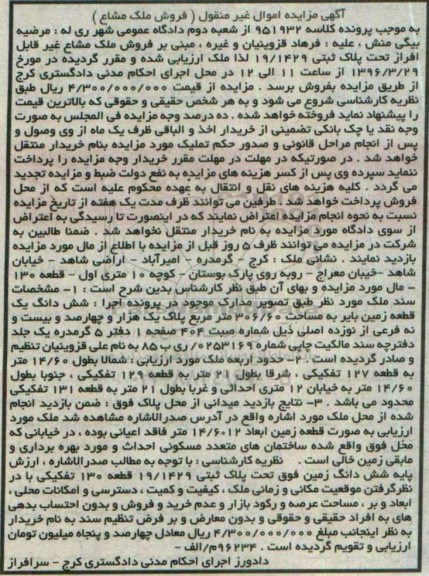 آگهی مزایده اموال غیر منقول ( فروش ملک مشاع )
به موجب پرونده کلاسه ۹۵۱۹۳۲ از شعبه دوم دادگاه عمومی شهر ری له : مرضیه
بیکی منش ، علیه : فرهاد قزوینیان و غیره ، مبنی بر فروش ملک مشاع غیر قابل
افراز تحت پلاک ثبتی ۱۹/۱۴۲۹ لذا ملک ارزیابی شده و مقرر گردیده در مورخ
۱۳۹۶/۳/۲۹ از ساعت ۱۱ الی ۱۲ در محل اجرای احکام مدنی دادگستری کرج
از طریق مزایده بفروش برسد . مزایده از قیمت ۴/۳۰۰/۰۰۰/۰۰۰ ریال طبق
نظریه کارشناسی شروع می شود و به هر شخص حقیقی و حقوقی که بالاترین قیمت
را پیشنهاد نماید فروخته خواهد شد . ده درصد وجه مزایده فی المجلس به صورت
وجه نقد یا چک بانکی تضمینی از خریدار اخذ و الباقی ظرف یک ماه از وی وصول و
پس از انجام مراحل قانونی و صدور حکم تملیک مورد مزایده بنام خریدار منتقل
خواهد شد . در صورتیکه در مهلت در مهلت مقرر خریدار وجه مزایده را پرداخت
ننماید سپرده وی پس از کسر هزینه های مزایده به نفع دولت ضبط و مزایده تجدید
می گردد . کلیه هزینه های نقل و انتقال به عهده محکوم علیه است که از محل
فروش پرداخت خواهد شد . طرفین می توانند ظرف مدت یک هفته از تاریخ مزایده
نسبت به نحوه انجام مزایده اعتراض نمایند که در اینصورت تا رسیدگی به اعتراض
از سوی دادگاه مورد مزایده به نام خریدار منتقل نخواهد شد . ضمنا طالبین به
شرکت در مزایده می توانند ظرف ۵ روز قبل از مزایده با اطلاع از مال مورد مزایده
بازدید نمایند . نشانی ملک : کرج - گرمدره - امیرآباد - اراضی شاهد - خیابان
شاهد -خیبان معراج - روبه روی پارک بوستان - کوچه ۱۰ متری اول - قطعه ۱۳۰
- مال مورد مزایده و بهای آن طبق نظر کارشناس بدین شرح است : ۱- مشخصات
سند ملک مورد نظر طبق تصویر مدارک موجود در پرونده اجرا : شش دانگ یک
قطعه زمین بایر به مساحت ۳۰۶/۶۰ متر مربع پلاک یک هزار و چهارصد و بیست و
نه فرعی از نوزده اصلی ذیل شماره صبت ۴۰۴ صفحه ۱ دفتر ۵ گرمدره یک جلد
دفترچه سند مالکیت چاپی شماره ۰۲۵۳۱۶۹/ ری ب ۸۵ به نام علی قزوینیان تنظیم
و صادر گردیده است . ۲- حدود اربعه ملک مورد ارزیابی : شمالا بطول ۱۴/۶۰ متر
به قطعه ۱۲۷ تفکیکی ، شرقا بطول ۲۱ متر به قطعه ۱۲۹ تفکیکی ، جنوبا بطول
۱۴/۶۰ متر به خیابان ۱۲ متری احداثی و غربا بطول ۲۱ متر به قطعه ۱۳۱ تفکیکی
محدود می باشد . ۳- نتایج بازدید میدانی از محل پلاک فوق : ضمن بازدید انجام
شده از محل ملک مورد اشاره واقع در آدرس صدرالاشاره مشاهده شد ملک مورد
ارزیابی به صورت قطعه زمین ابعاد ۱۴/۶۰۱۲ متر فاقد اعیانی بوده ، در خیابانی که
محل فوق واقع شده ساختمان های متعدد مسکونی احداث و مورد بهره برداری و
مابقی زمین خالی است . نظریه کارشناسی : با توجه به مطالب صدرالاشاره ، ارزش
پایه شش دانگ زمین فوق تحت پلاک ثبتی ۱۹/۱۴۲۹ قطعه ۱۳۰ تفکیکی با در
نظرگرفتن موقعیت مکانی و زمانی ملک ، کیفیت و کمیت ، دسترسی و امکانات محلی ،
ابعاد و بر ، مساحت عرصه و رکود بازار و عدم خرید و فروش و بدون احتساب بدهی
های به افراد حقیقی و حقوقی و بدون معارض و بر فرض تنظیم سند به نام خریدار
به نظر اینجانب مبلغ ۴/۳۰۰/۰۰۰/۰۰۰ ریال معادل چهارصد و پنجاه میلیون تومان
ارزیابی و تقویم گردیده است . ۹۶۲۳۴م/الف -
دادورز اجرای احکام مدنی دادگستری کرج - سرافراز